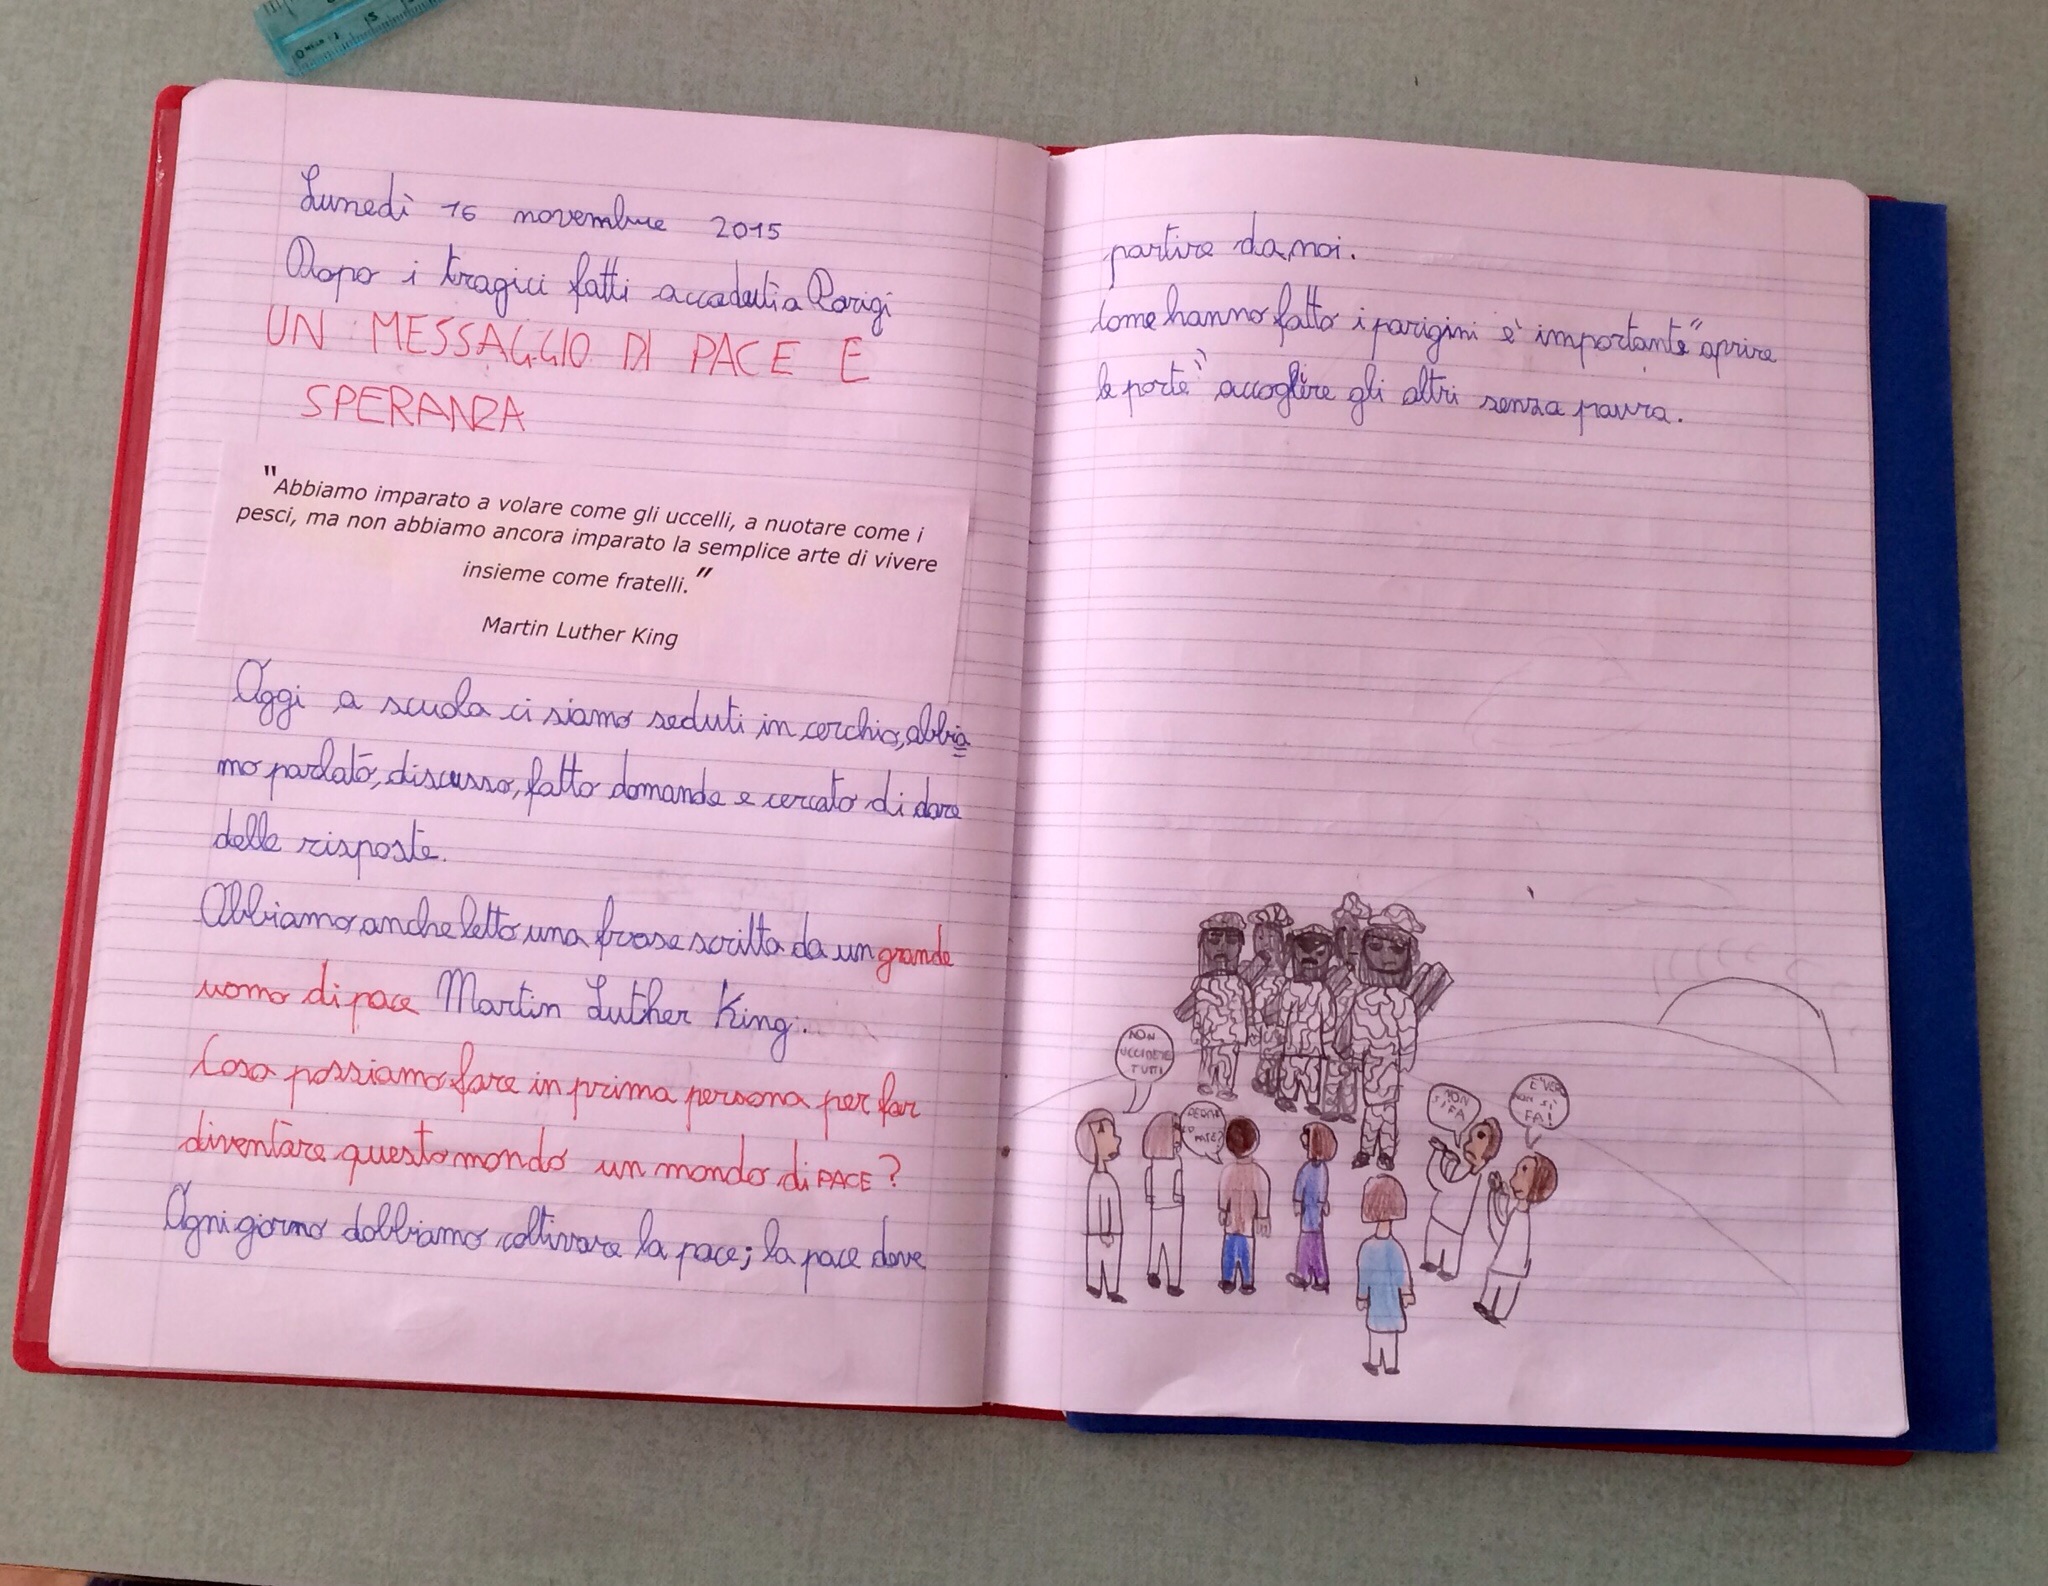 Lunedì 16 novembre 2015
Dopo i tragici fatti accaduti a Parigi
UN MESSAGGIO DI PACE E
SPERANZA
"Abbiamo imparato a volare come gli uccelli, a nuotare come i
pesci, ma non abbiamo ancora imparato la semplice arte di vivere
insieme come fratelli."
Martin Luther King
Oggi a scuola ci siamo seduti in cerchio, abbia
mo parlato, discusso, fatto domande e cercato di dare
delle risposte.
Abbiamo anche letto una frase scritta da un grande
uomo di pace Martin Luther King.
Cosa possiamo fare in prima persona per far
diventare questo mondo un mondo di PACE?
Ogni giorno dobbiamo coltivare la pace; la pace deve
partire da noi.
Come hanno fatto i parigini è importante "aprire
le porte" accogliere gli altri senza paura.
NON
UCCIDETE
TUTTI
NON
SI FA
E' VERO
NON SI
FA!